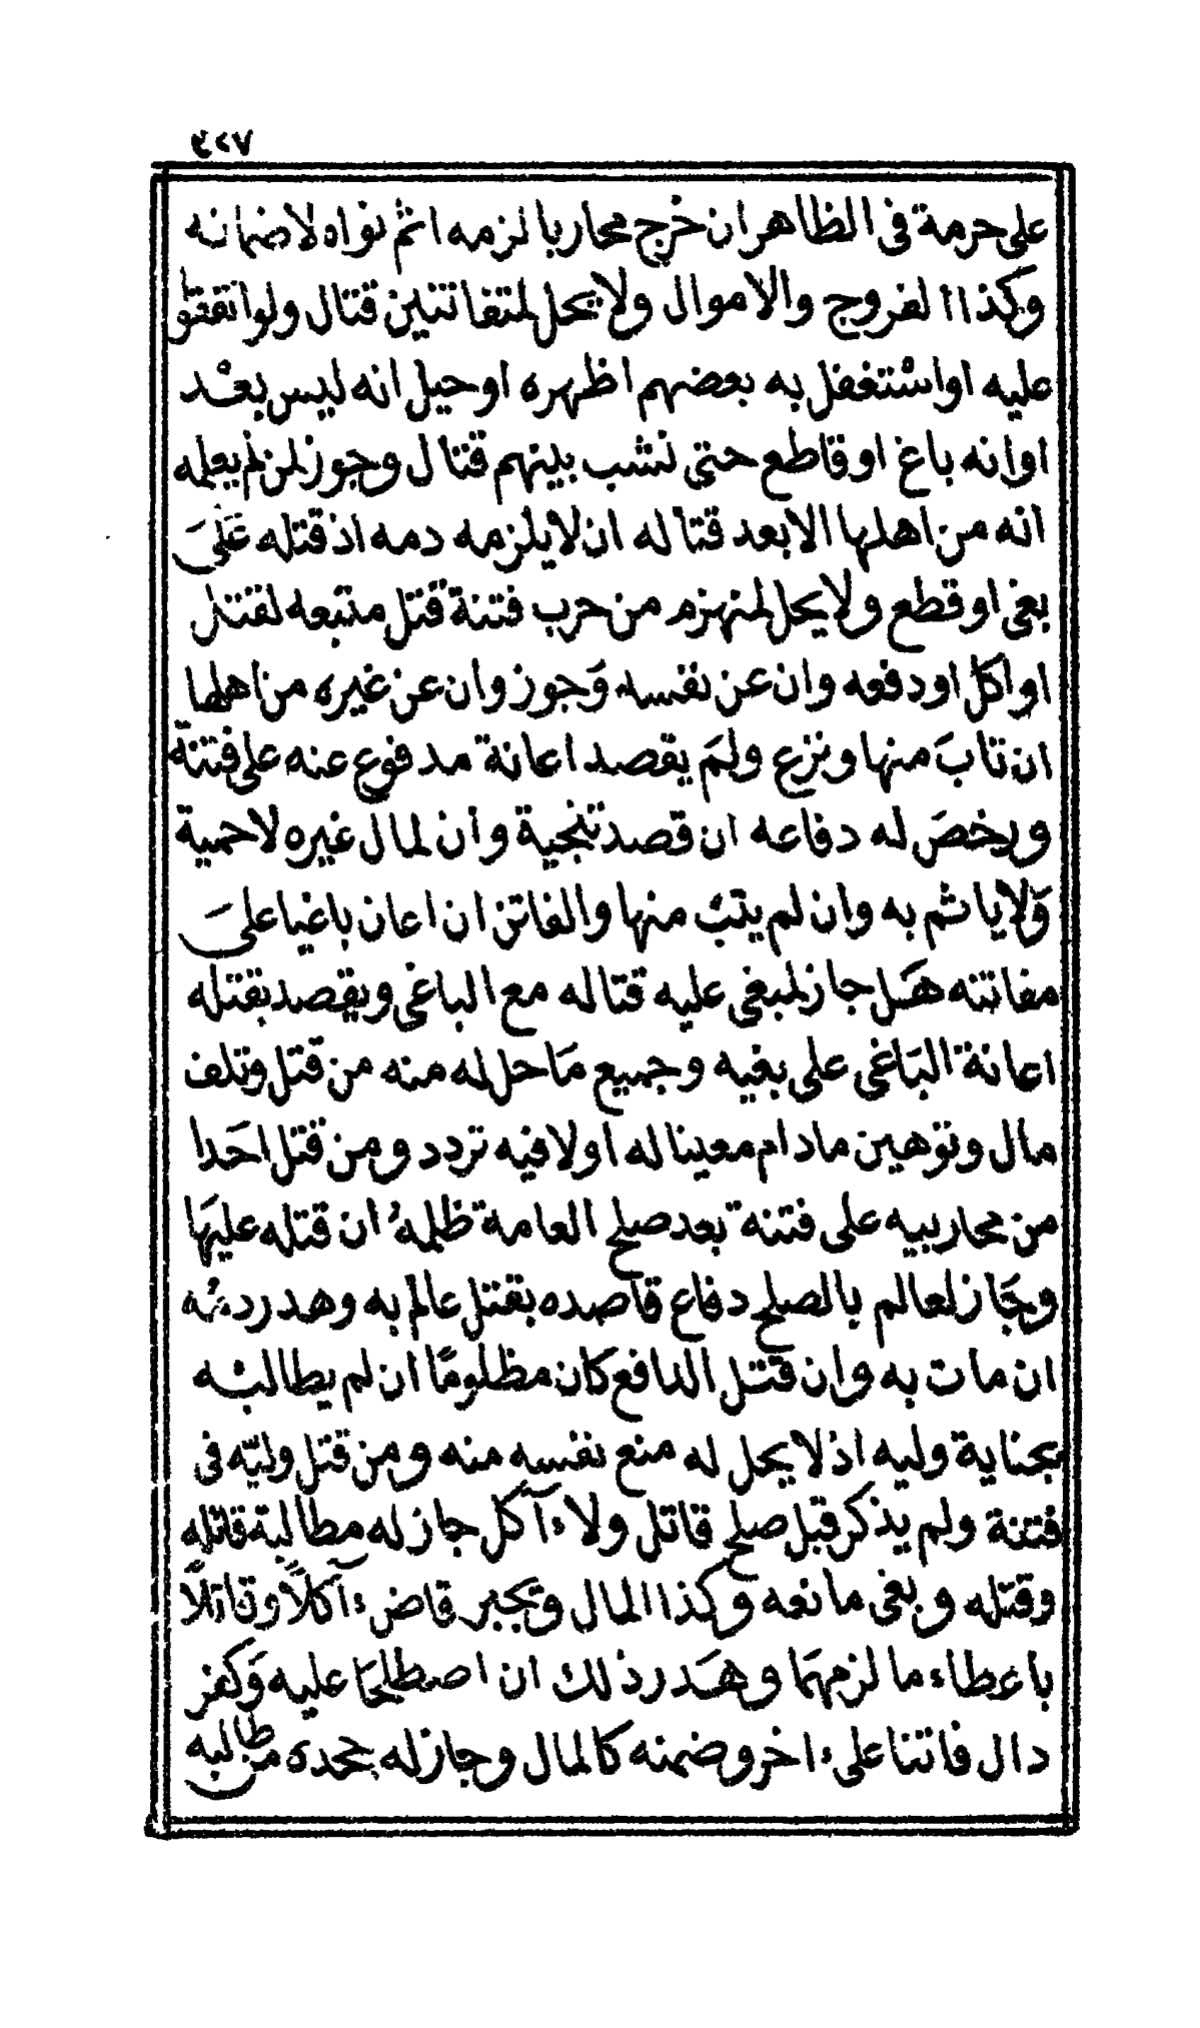 ٤٢٧
على حرمة فى الظاهر ان خرج محاربا لزمه اثم نواه لا ضمانه
وكذا الفروج والاموال ولا يحل لمتفاتنين قتال ولو اتفقوا
عليه او استغفل به بعضهم اظهره او حيل انه ليس بعد
او انه باغ او قاطع حتى نشب بينهم قتال وجوز لمن لم يعلمه
انه من اهلها الا بعد قتاله ان لا يلزمه دمه اذ قتله على
بغى او قطع ولا يحل لمنهزم من حرب فتنة قتل متبعه لقتل
او اكل او دفعه وان عن نفسه وجوز وان عن غيره من اهلها
ان تاب منها ونزع ولم يقصد اعانة مدفوع عنه على فتنة
ورخص له دفاعه ان قصد تنجية وان لمال غيره لا حمية
ولا ياثم به وان لم يتب منها والفاتن ان اعان باغيا على
مفاتنه هل جاز لمبغى عليه قتاله مع الباغى ويقصد بقتله
اعانة الباغى على بغيه وجميع ما حل له منه من قتل وتلف
مال وتوهين مادام معينا له اولا فيه تردد ومن قتل احدا
من محاربيه على فتنة بعد صلح العامة ظلمه ان قتله عليها
وجاز لعالم بالصلح دفاع قاصده بقتل عالم به وهدر دمه
ان مات به وان قتل الدافع كان مظلوما ان لم يطالبه
بجناية وليه اذ لا يحل له منع نفسه منه ومن قتل وليه فى
فتنة ولم يذكر قبل صلح قاتل ولا ءآكل جاز له مطالبة قاتله
وقتله وبغى مانعه وكذا المال ويجبر قاض ءآكلا وقاتلا
باعطاء ما لزمهما وهدر ذلك ان اصطلحا عليه وكفر
دال فاتنا على ءاخر وضمنه كالمال وجاز له جحده من طالبه